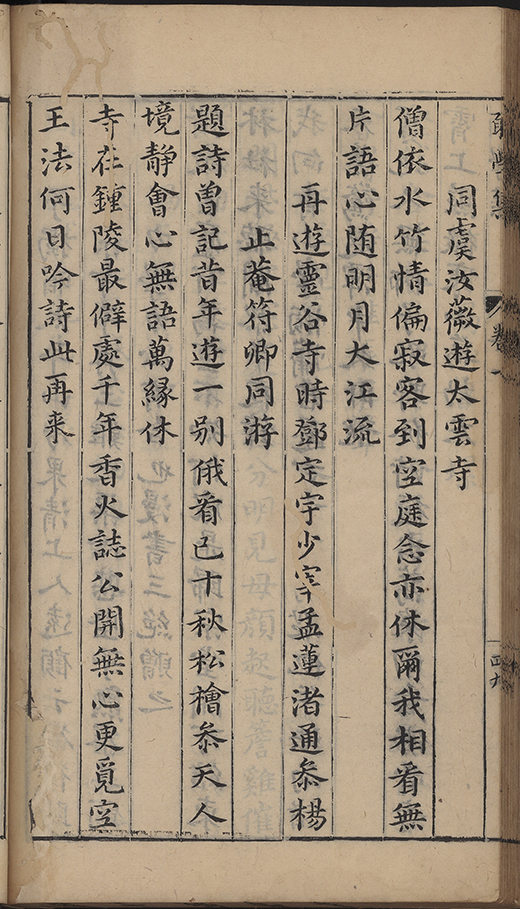 同虞汝薇遊太雲寺
僧依水竹情偏寂客到空庭念亦休爾我相看無
片語心随明月大江流
再遊靈谷寺時鄧定宇少宰孟蓮渚通叅楊
止菴符卿同游
題詩曽記昔年遊一别俄看已十秋松檜叅天人
境静會心無語萬緣休
寺在鍾陵最僻處千年香火誌公開無心更覓空
王法何日吟詩此再来